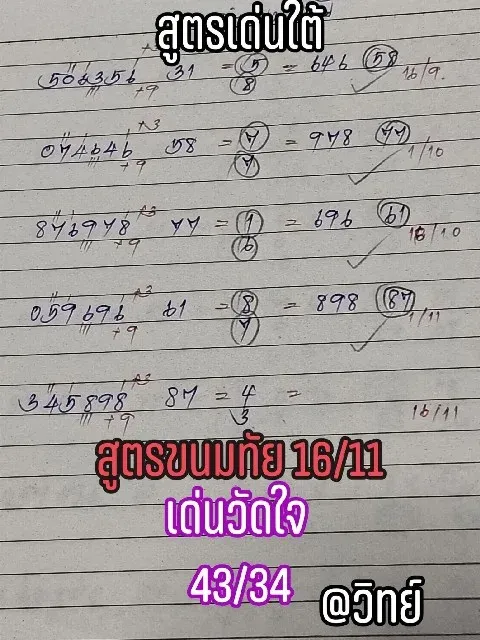 สูตรเด่นใต้
506356 +3 +9 31 = 5 8 = 646 58 16/9
074646 +3 +9 58 = 7 7 = 978 77 1/10
876978 +3 +9 77 = 1 6 = 696 61 16/10
059696 +3 +9 61 = 8 7 = 898 87 1/11
345898 +3 +9 87 = 4 3 = 16/11
สูตรขนมทัย 16/11
เด่นวัดใจ
43/34
@วิทย์